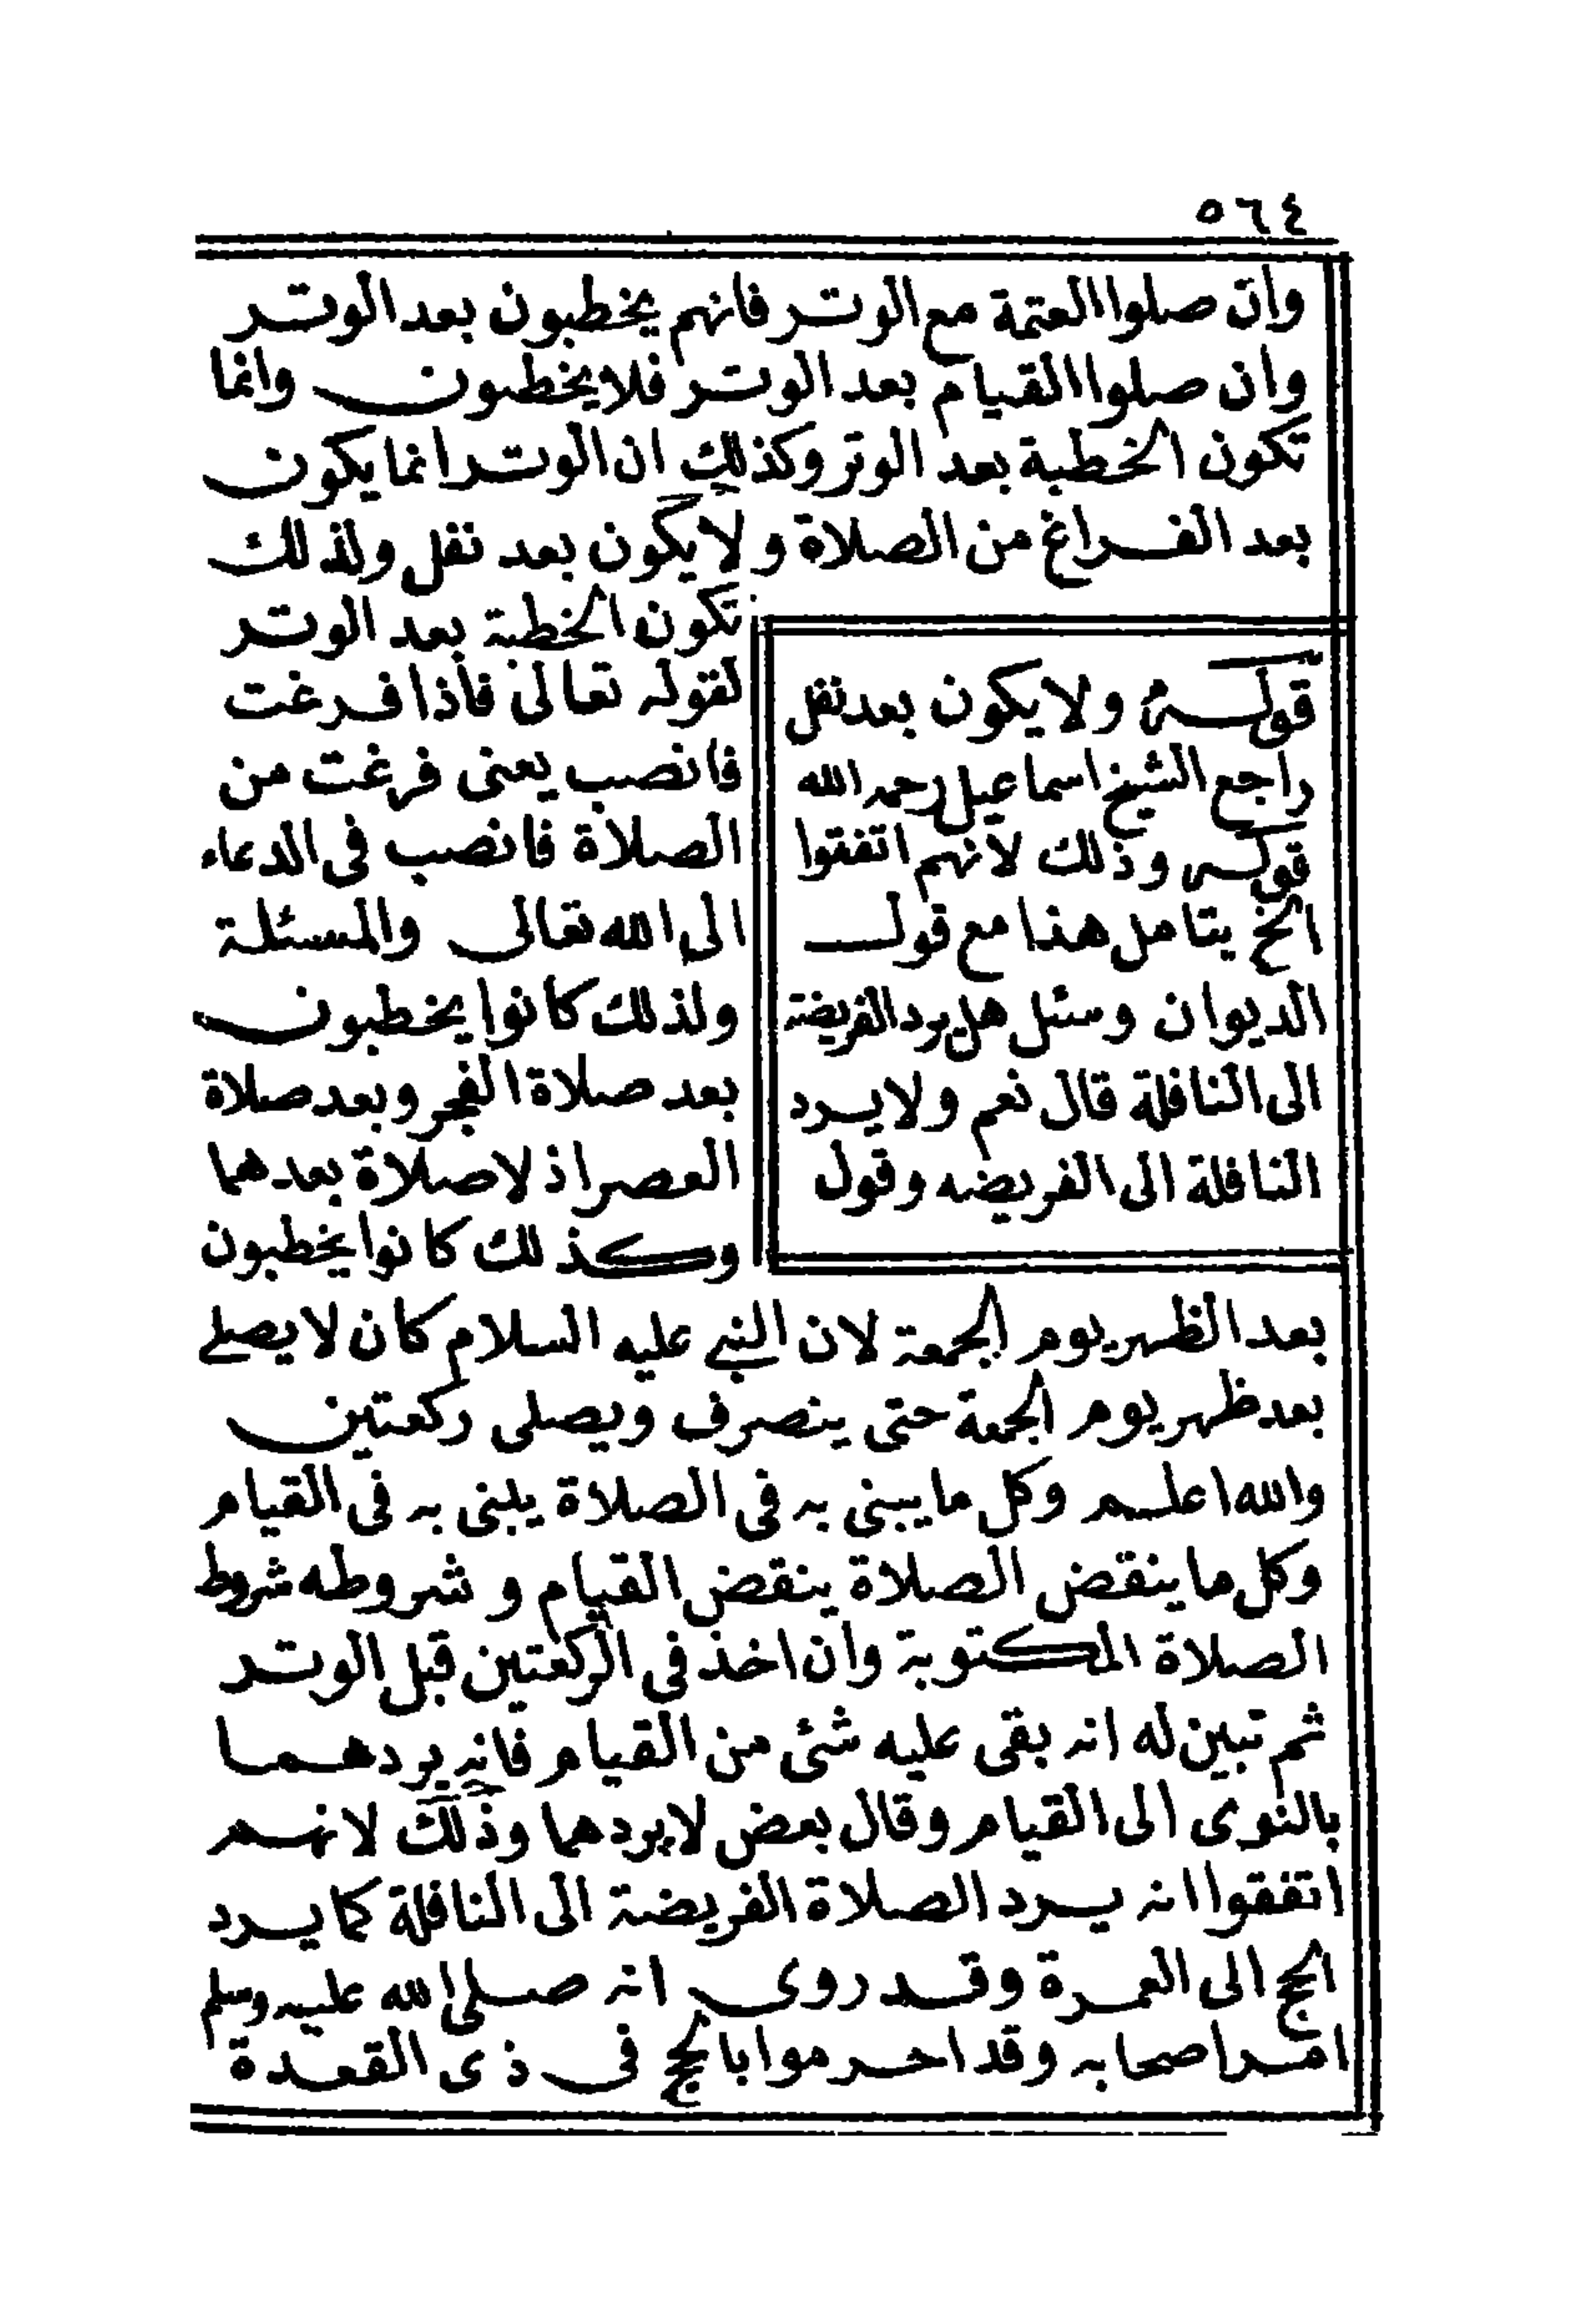 ٥٦٤
وان صلوا العتمة مع الوتر فانهم يخطبون بعد الوتر
وان صلوا القيام بعد الوتر فلا يخطبون وانما
تكون الخطبة بعد الوتر وكذلك ان الوتر انما يكون
بعد الفراغ من الصلاة ولا يكون بعد نقل ولذلك
تكون الخطبة بعد الوتر
لقوله تعالى فاذا فرغت
فانصب يعنى فرغت من
الصلاة فانصب فى الدعاء
الى الله تعالى والمسئلة
ولذلك كانوا يخطبون
بعد صلاة الفجر وبعد صلاة
العصر اذ لا صلاة بعدهما
وكذلك كانوا يخطبون
قوله ولا يكون بعد نقل
راجع الشيخ اسماعيل رحمه الله
قوله وذلك لانهم اتفقوا
الخ يتامل هذا مع قول
الديوان وسئل هل يرد الفريضة
الى النافلة قال نعم ولا يرد
النافلة الى الفريضه وقول
بعد الظهر يوم الجمعة لان النبى عليه السلام كان لا يصلى
بعد ظهر يوم الجمعة حتى ينصرف ويصلى ركعتين
والله اعلم وكل ما يبنى به فى الصلاة يبنى به فى القيام
وكل ما ينقض الصلاة ينقض القيام و شروطه شروط
الصلاة المكتوبة وان اخذ فى الركعتين قبل الوتر
ثم تبين له انه بقى عليه شئ من القيام فانه يردهما
بالنوى الى القيام وقال بعض لا يردهما وذلك لانهم
اتفقوا انه يرد الصلاة الفريضة الى النافلة كما يرد
الحج الى العمرة وقد روى انه صلى الله عليه وسلم
امر اصحابه وقد احرموا بالحج فى ذى القعدة